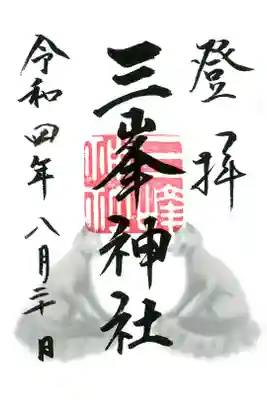 登拝
三峯神社
令和四年八月三十日